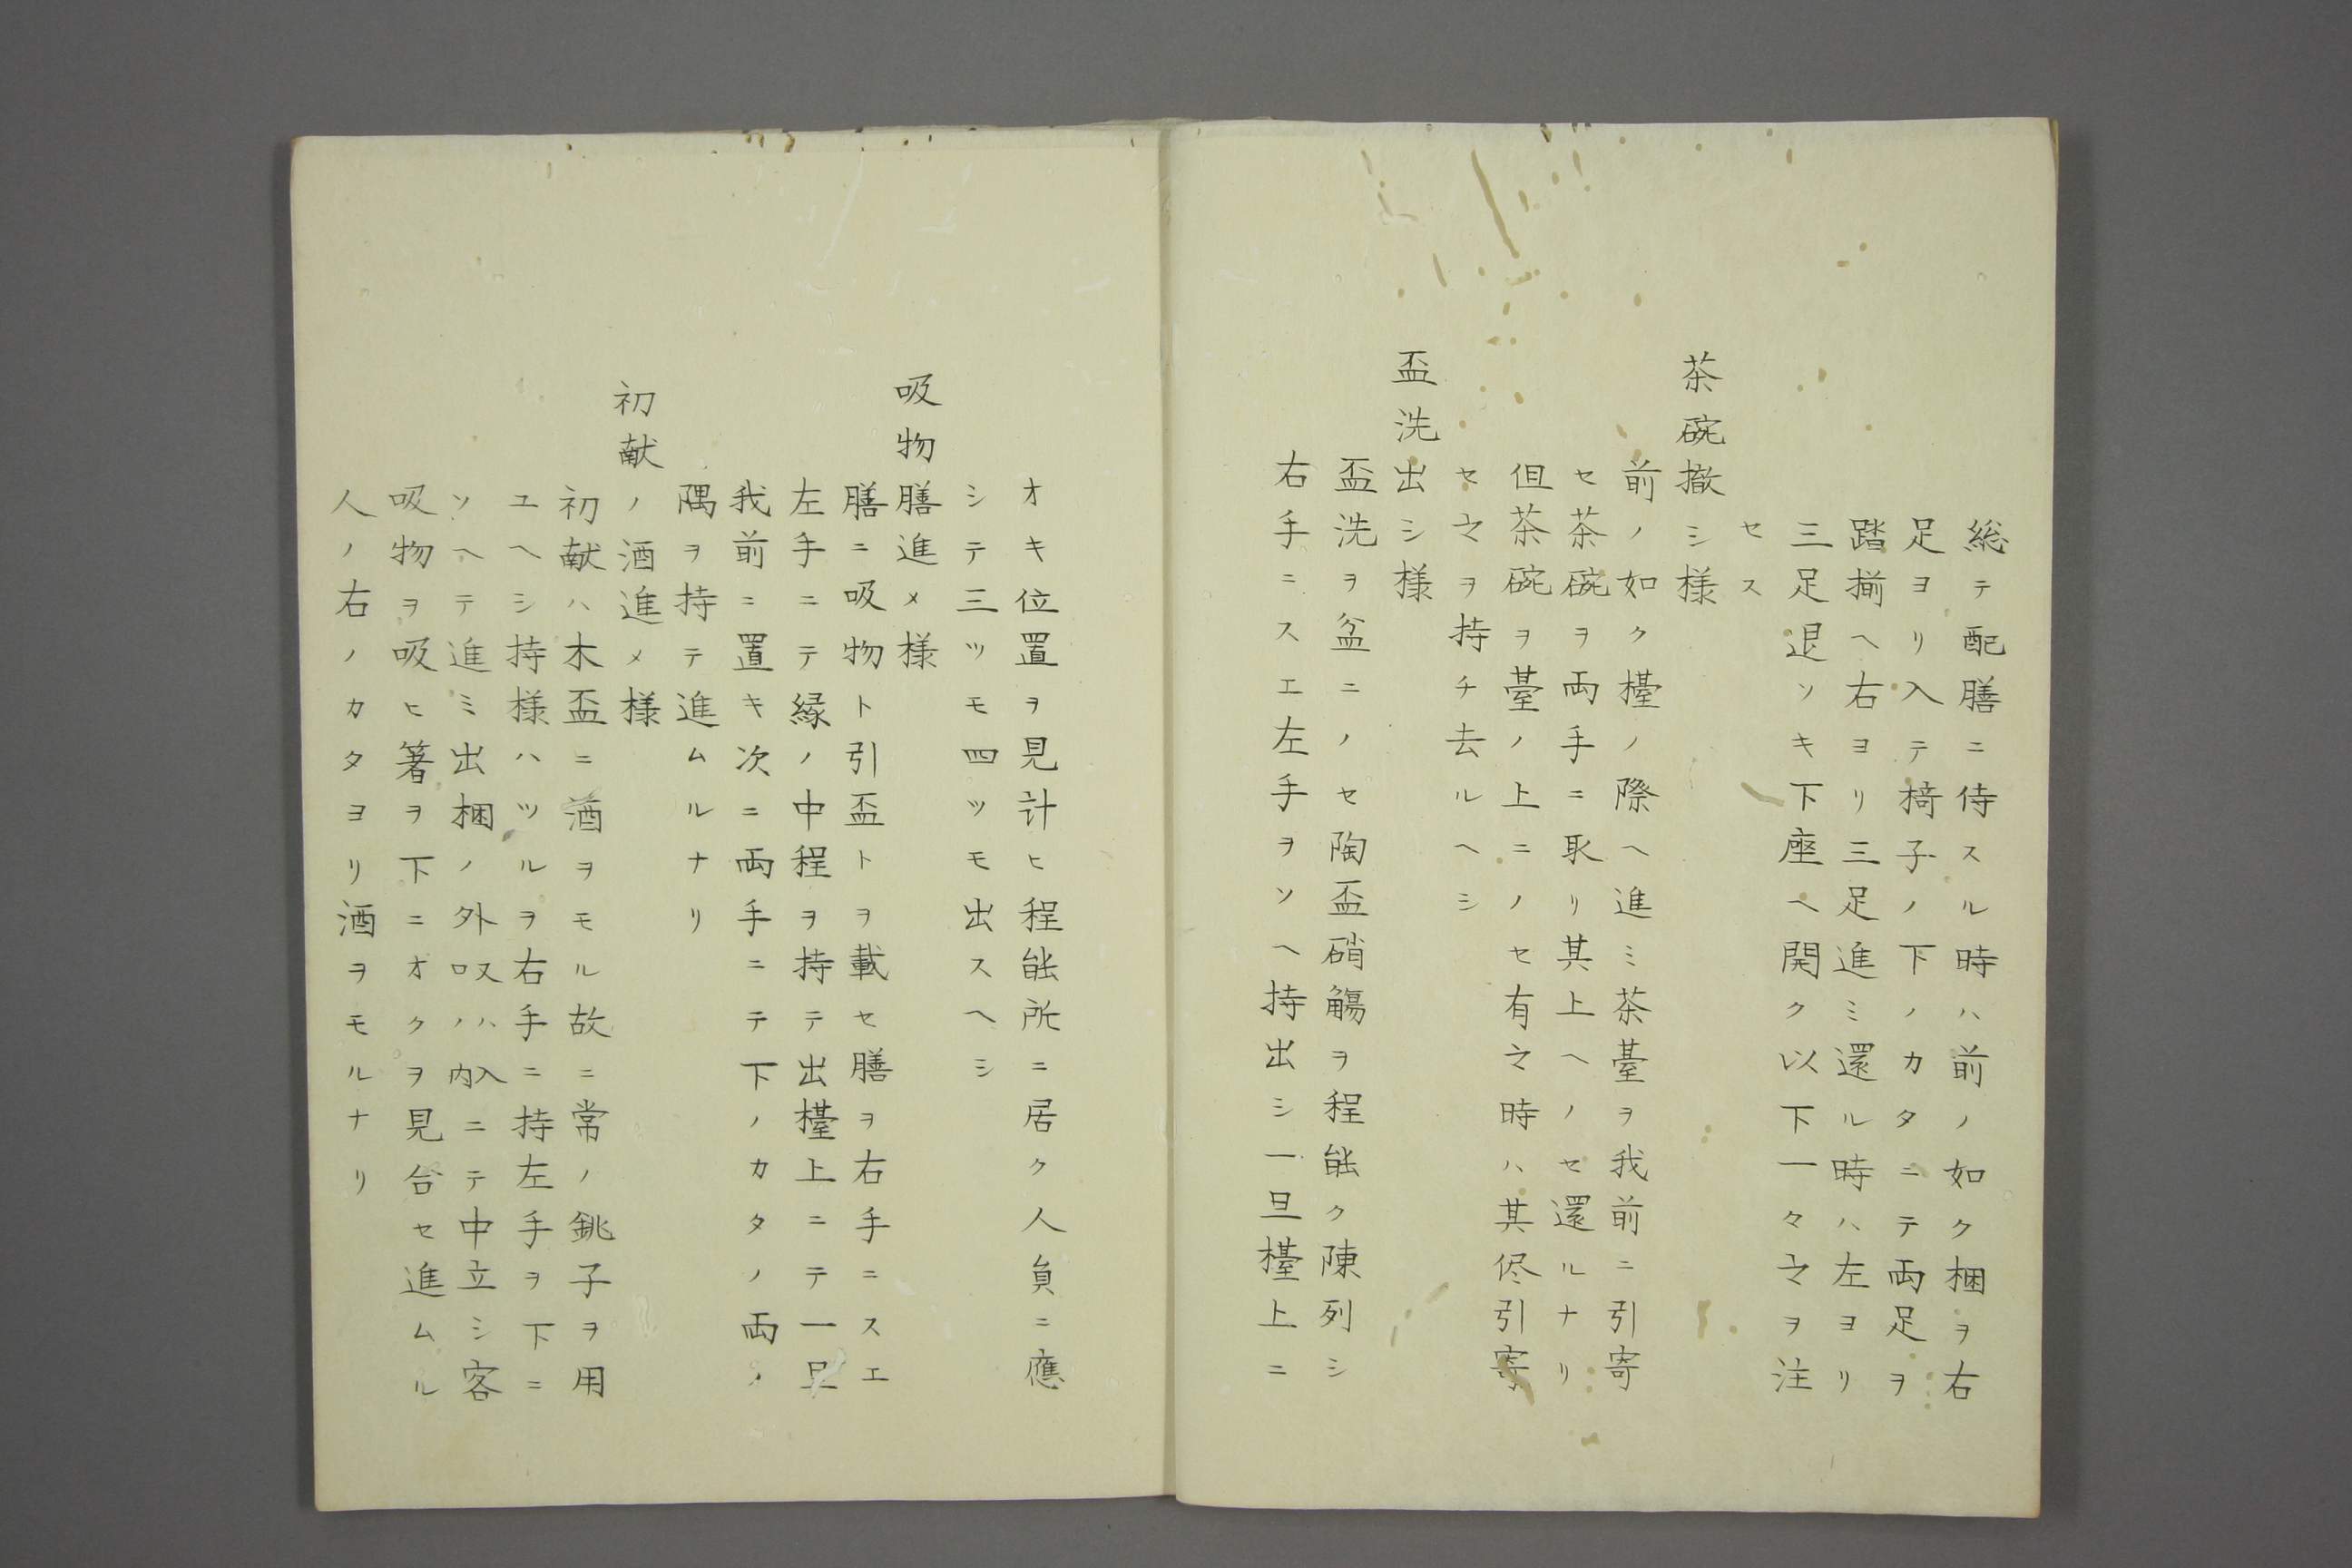 総テ配膳ニ侍スル時ハ前ノ如ク梱ヲ右
足ヨリ入テ椅子ノ下ノカタニテ両足ヲ
踏揃ヘ右ヨリ三足進ミ還ル時ハ左ヨリ
三足退ソキ下座ヘ開ク以下一々之ヲ注
セス
茶碗撤シ様
前ノ如ク檯ノ際ヘ進ミ茶䑓ヲ我前ニ引寄
セ茶碗ヲ両手ニ取リ其上ヘノセ還ルナリ
但茶碗ヲ䑓ノ上ニノセ有之時ハ其侭引寄
セ之ヲ持チ去ルヘシ
盃洗出シ様
盃洗ヲ盆ニノセ陶盃硝觴ヲ程能ク陳列シ
右手ニスエ左手ヲソヘ持出シ一旦檯上ニ
オキ位置ヲ見計ヒ程能所ニ居ク人員ニ應
シテ三ツモ四ツモ出スヘシ
吸物膳進メ様
膳ニ吸物ト引盃トヲ載セ膳ヲ右手ニスエ
左手ニテ縁ノ中程ヲ持テ出檯上ニテ一旦
我前ニ置キ次ニ両手ニテ下ノカタノ両ノ
隅ヲ持テ進ムルナリ
初献ノ酒進メ様
初献ハ木盃ニ酒ヲモル故ニ常ノ銚子ヲ用
ユヘシ持様ハツルヲ右手ニ持左手ヲ下ニ
ソヘテ進ミ出梱ノ外又ハ入口ノ内ニテ中立シ客
吸物ヲ吸ヒ箸ヲ下ニオクヲ見合セ進ムル
人ノ右ノカタヨリ酒ヲモルナリ